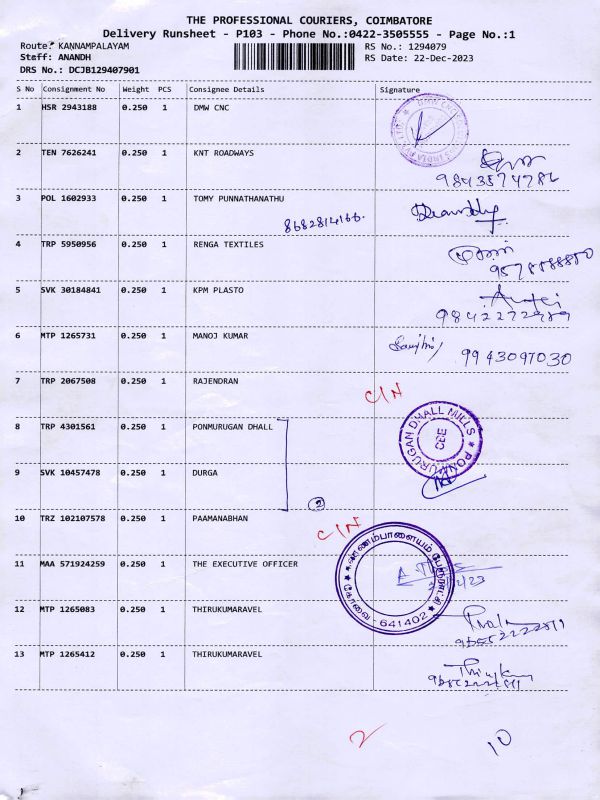 THE PROFESSIONAL COURIERS, COIMBATORE
Delivery Runsheet - P103 - Phone No.:0422-3505555 - Page No.:1
Route: KANNAMPALAYAM RS No.: 1294079
Staff: ANANDH RS Date: 22-Dec-2023
DRS No.: DCJB129407901
S No Consignment No Weight PCS Consignee Details Signature
1 HSR 2943188 0.250 1 DMW CNC
2 TEN 7626241 0.250 1 KNT ROADWAYS
3 POL 1602933 0.250 1 TOMY PUNNATHANATHU
8682814166.
4 TRP 5950956 0.250 1 RENGA TEXTILES
5 SVK 30184841 0.250 1 KPM PLASTO
9842272989
6 MTP 1265731 0.250 1 MANOJ KUMAR
9943097030
7 TRP 2067508 0.250 1 RAJENDRAN C/N
8 TRP 4301561 0.250 1 PONMURUGAN DHALL
PONMURUGAN DHALL MILLS
CBE
9 SVK 10457478 0.250 1 DURGA
2
10 TRZ 102107578 0.250 1 PAAMANABHAN C/N
11 MAA 571924259 0.250 1 THE EXECUTIVE OFFICER
641402
12 MTP 1265083 0.250 1 THIRUKUMARAVEL
13 MTP 1265412 0.250 1 THIRUKUMARAVEL
2 10